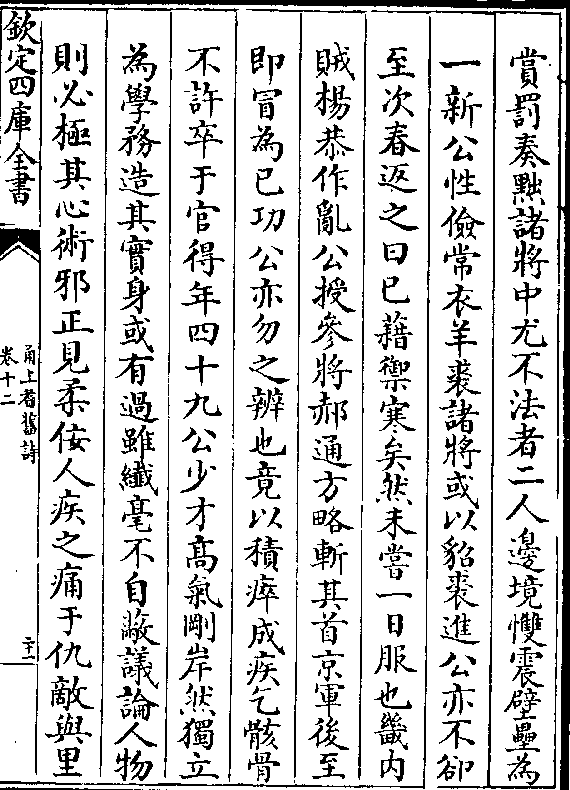 賞罰奏黜諸將中尤不法者二人邊境慴震壁壘為
一新公性儉常衣羊裘諸將或以貂裘進公亦不卻
至次春返之曰已藉禦寒矣然未嘗一日服也畿内
賊楊恭作亂公授參將郝通方略斬其首京軍後至
即冒為己功公亦勿之辨也竟以積瘁成疾乞骸骨
不許卒于官得年四十九公少才高氣剛岸然獨立
為學務造其實身或有過雖纎毫不自蔽議論人物
則必極其心術邪正見柔佞人疾之痛于仇敵與里
欽定四庫全書
甬上耆舊詩
卷十二